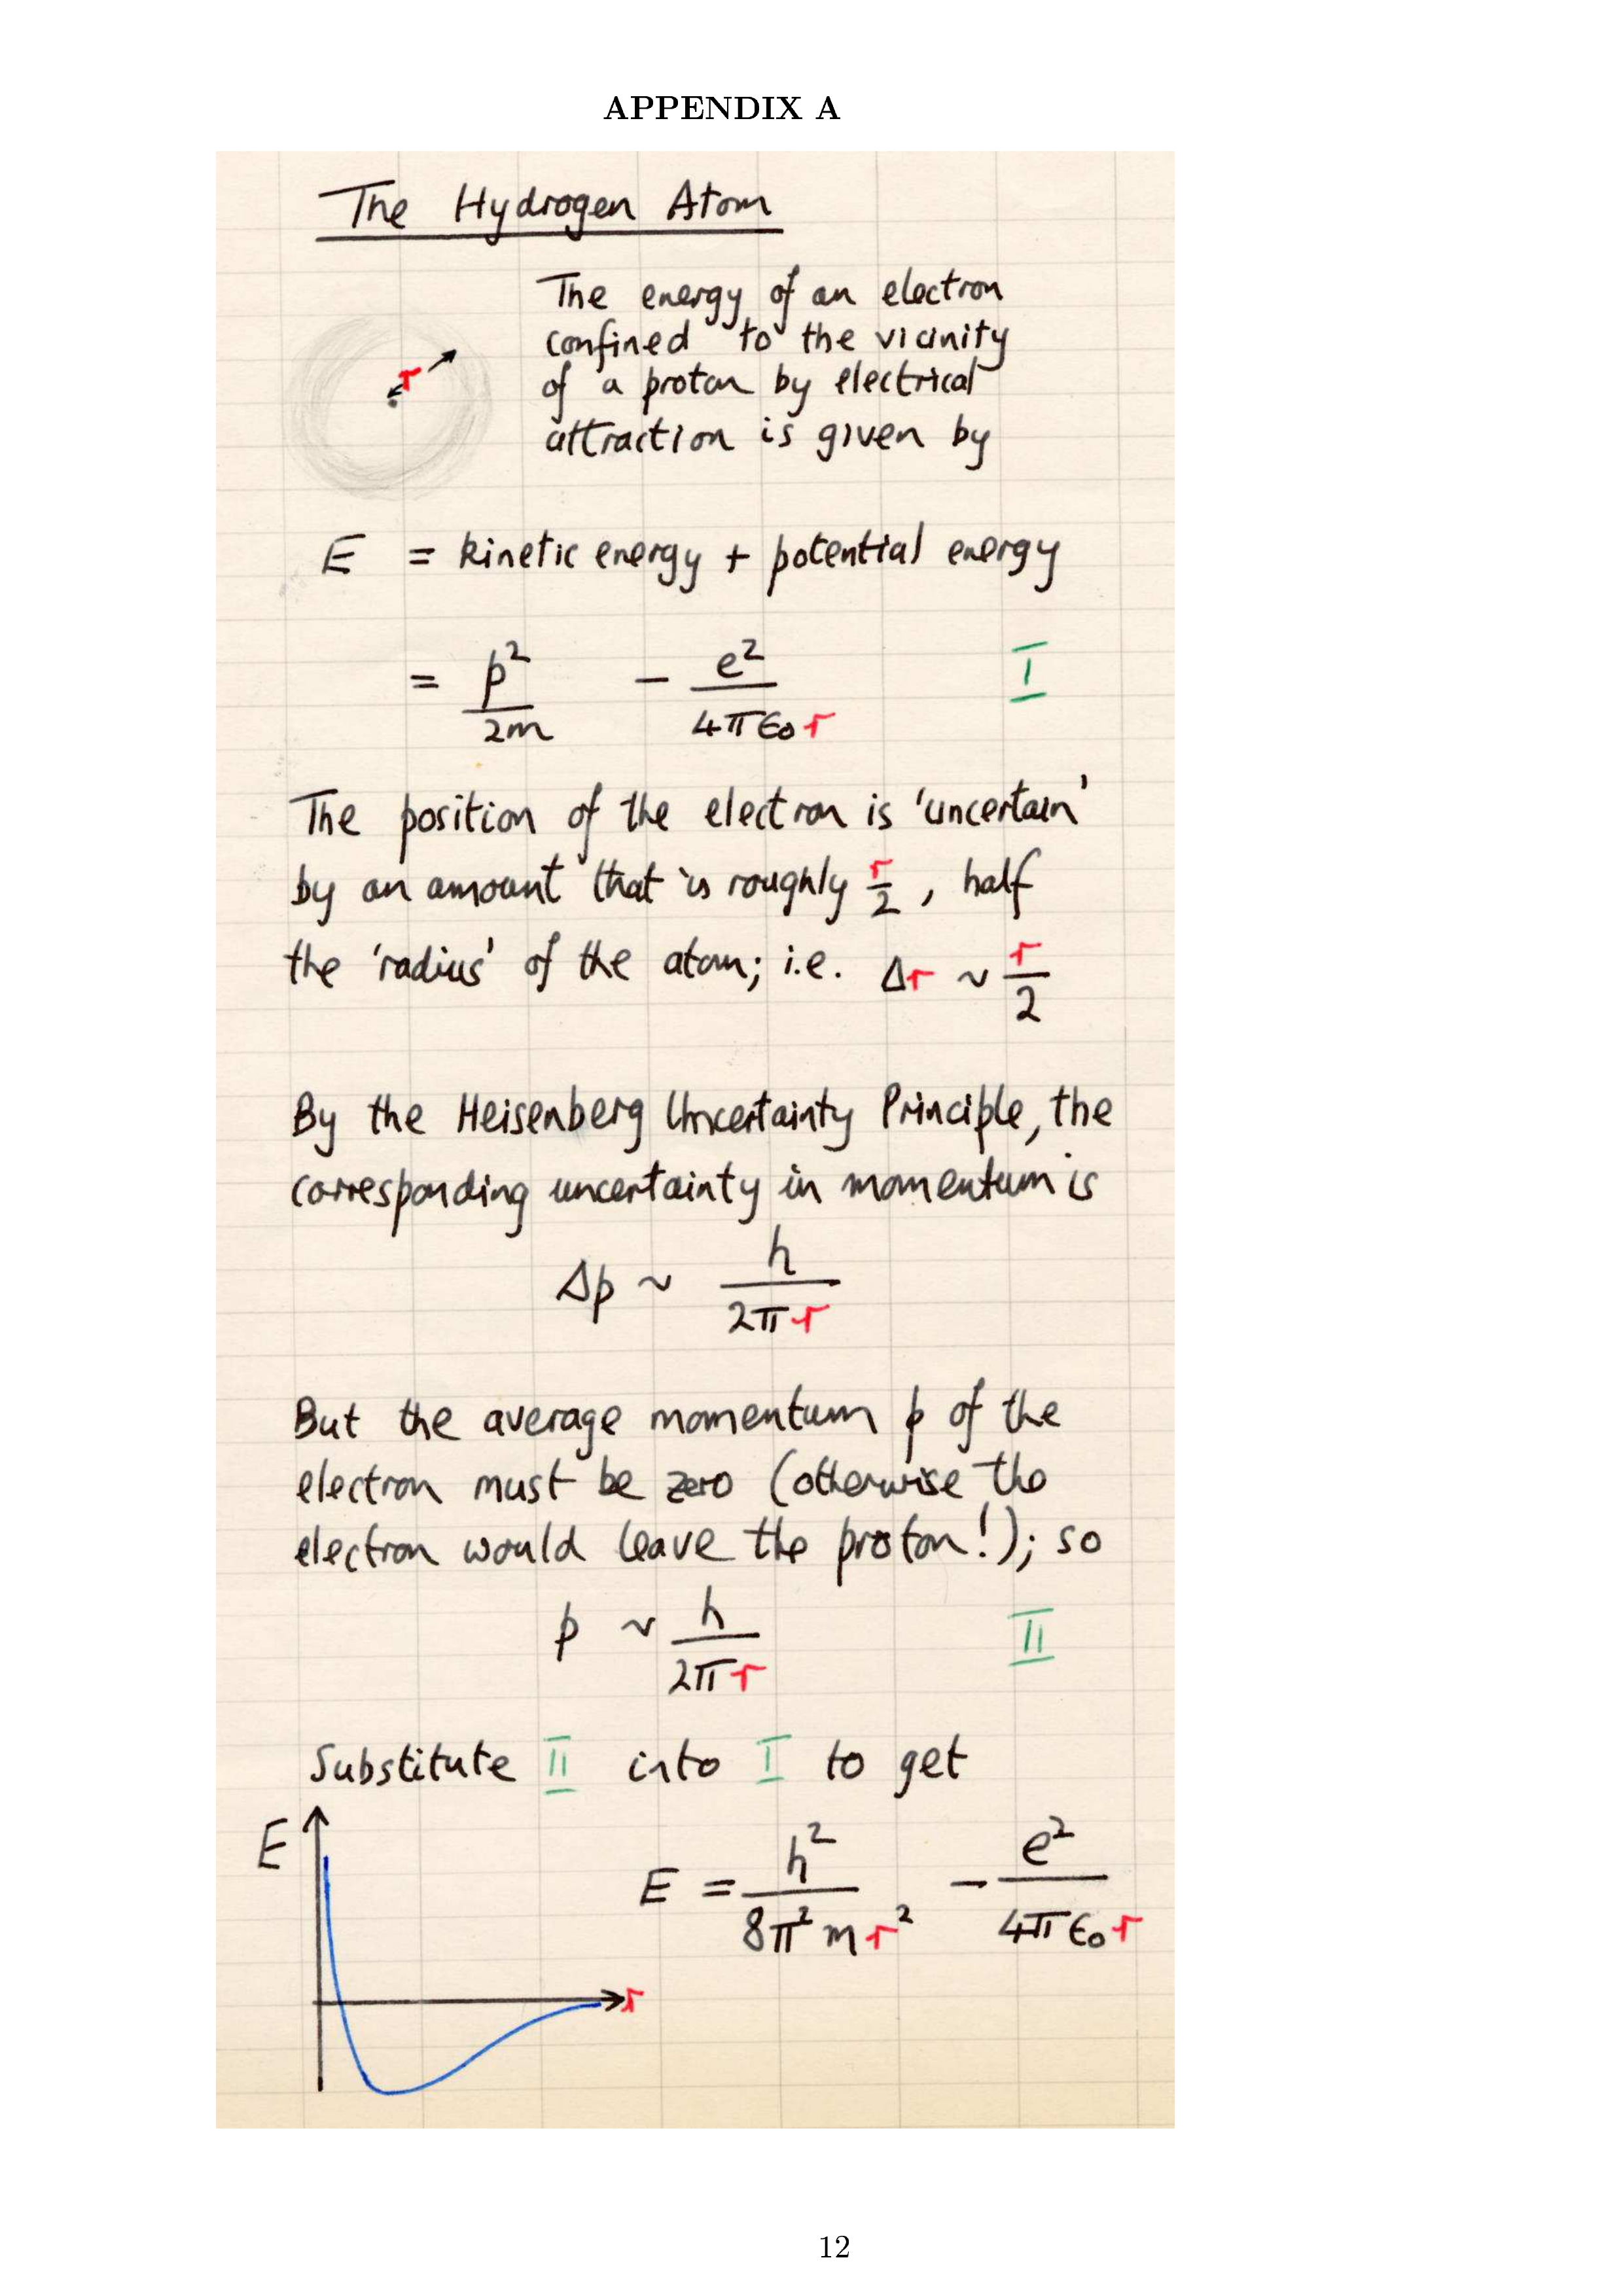 APPENDIX A
The Hydrogen Atom
The energy of an electron
confined to the vicinity
of a proton by electrical
attraction is given by
r
E = kinetic energy + potential energy
= p²/2m − e²/4πϵ₀r I
The position of the electron is 'uncertain'
by an amount that is roughly r/2, half
the 'radius' of the atom; i.e. Δr ~ r/2
By the Heisenberg Uncertainty Principle, the
corresponding uncertainty in momentum is
Δp ~ h/2πr
But the average momentum p of the
electron must be zero (otherwise the
electron would leave the proton!); so
p ~ h/2πr II
Substitute II into I to get
E
E = h²/8π²mr² − e²/4πϵ₀r
r
12